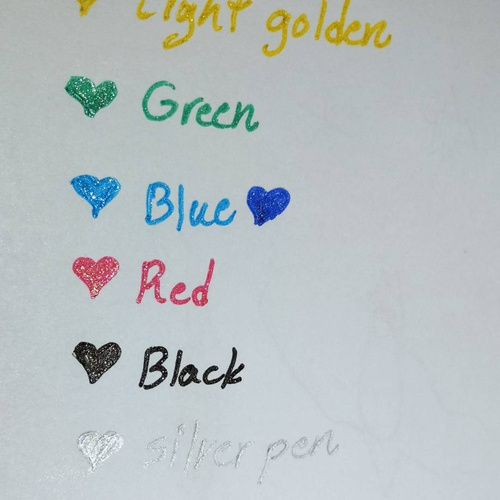 Light golden
Green
Blue
Red
Black
silver pen